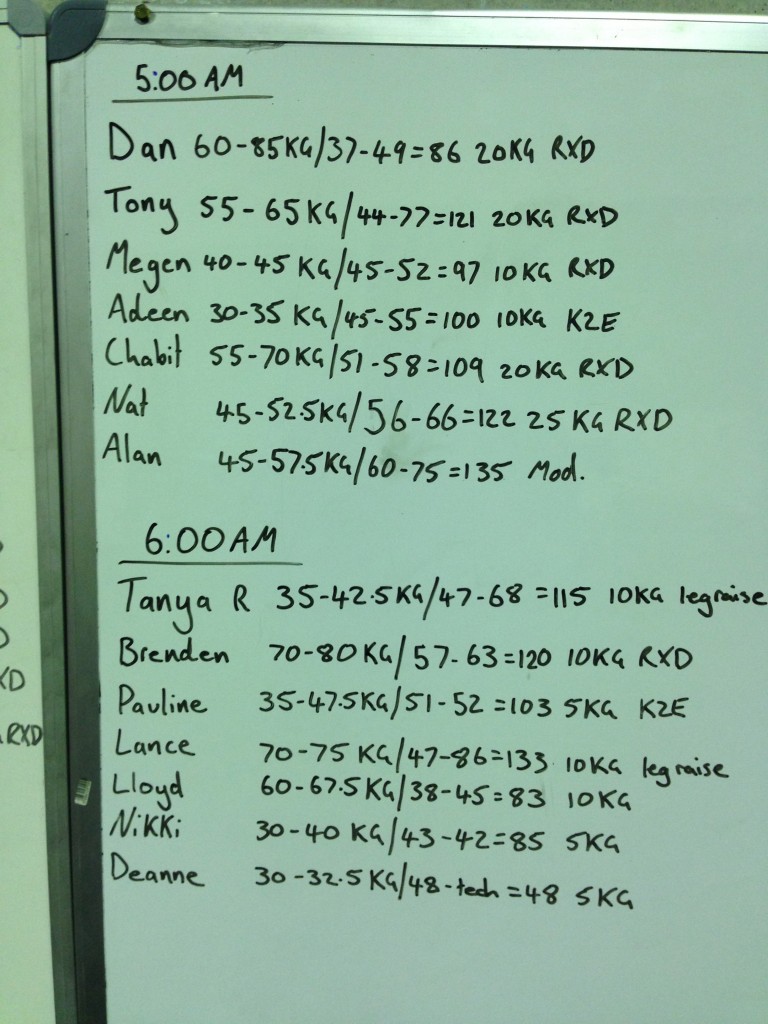 5:00 AM
Dan 60-85KG/37-49=86 20KG RXD
Tony 55-65KG/44-77=121 20KG RXD
Megen 40-45 KG/45-52=97 10KG RXD
Adeen 30-35 KG/45-55=100 10KG K2E
Chabit 55-70KG/51-58=109 20KG RXD
Nat 45-52.5KG/56-66=122 25 KG RXD
Alan 45-57.5KG/60-75=135 Mod.
6:00 AM
Tanya R 35-42.5KG/47-68=115 10KG legraise
Brenden 70-80KG/57-63=120 10KG RXD
Pauline 35-47.5KG/51-52=103 5KG K2E
Lance 70-75 KG/47-86=133 10KG legraise
Lloyd 60-67.5KG/38-45=83 10KG
Nikki 30-40 KG/43-42=85 5KG
Deanne 30-32.5KG/48-tech=48 5KG
RXD